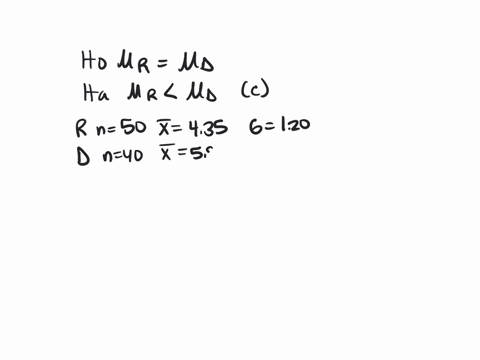 Ho μR = μD
Ha μR < μD (c)
R n=50 x̄=4.35 6=1.20
D n=40 x̄=5.